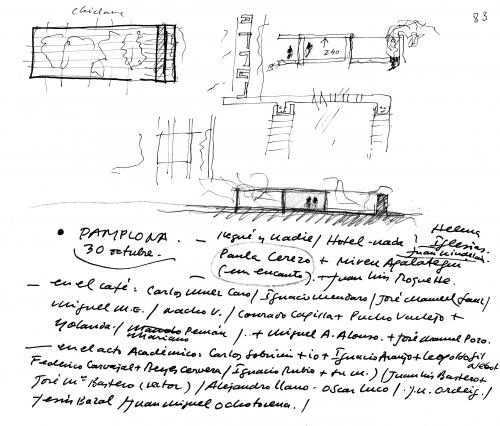 83
240
• PAMPLONA. — llegué y nadie / Hotel-nada! Helena Iglesias.
30 octubre. Paula Cerezo + Miren Apalategui
(un encanto) + Juan Luis Roquette.
— en el café: Carlos / Ignacio / José Manuel
Miguel M.E. / Nacho V. / Conrado Capilla + Pucho Vallejo +
Yolanda / Mariano / .. + Miguel A. Alonso. + José Manuel Pozo.
— en el acto Académico: Carlos Sobrini + io + Ignacio Araujo + Leopoldo Gil
Federico Carvajal + Reyes Cervera / Ignacio Rubio + su M.) (Juan Luis Bastero +
José Mª Bastero (rector) / Alejandro Llano. Oscar / . J.M. Ordeig /
Jesús Bazal / Juan Miguel Ochotorena. /